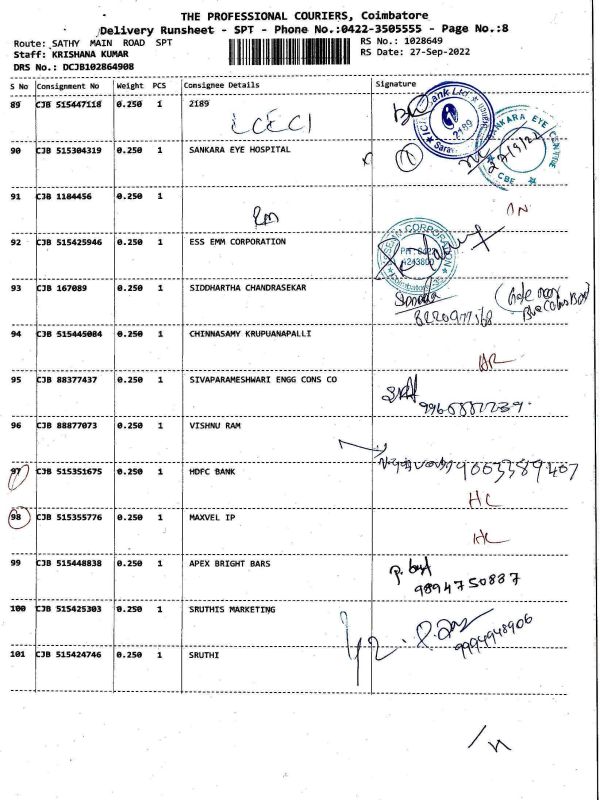 THE PROFESSIONAL COURIERS, Coimbatore
Delivery Runsheet - SPT - Phone No.:0422-3505555 - Page No.:8
Route: SATHY MAIN ROAD SPT
RS No.: 1028649
Staff: KRISHANA KUMAR
RS Date: 27-Sep-2022
DRS No.: DCJB102864908
S No Consignment No Weight PCS Consignee Details Signature
89 CJB 515447118 0.250 1 2189
ICICI
2189
90 CJB 515304319 0.250 1 SANKARA EYE HOSPITAL
SANKARA EYE CENTRE
CBE
91 CJB 1184456 0.250 1
92 CJB 515425946 0.250 1 ESS EMM CORPORATION
93 CJB 167089 0.250 1 SIDDHARTHA CHANDRASEKAR
94 CJB 515445084 0.250 1 CHINNASAMY KRUPUANAPALLI
95 CJB 88377437 0.250 1 SIVAPARAMESHWARI ENGG CONS CO
96 CJB 88877073 0.250 1 VISHNU RAM
97 CJB 515351675 0.250 1 HDFC BANK
HC
98 CJB 515355776 0.250 1 MAXVEL IP
99 CJB 515448838 0.250 1 APEX BRIGHT BARS
9894750887
100 CJB 515425303 0.250 1 SRUTHIS MARKETING
9994948906
101 CJB 515424746 0.250 1 SRUTHI